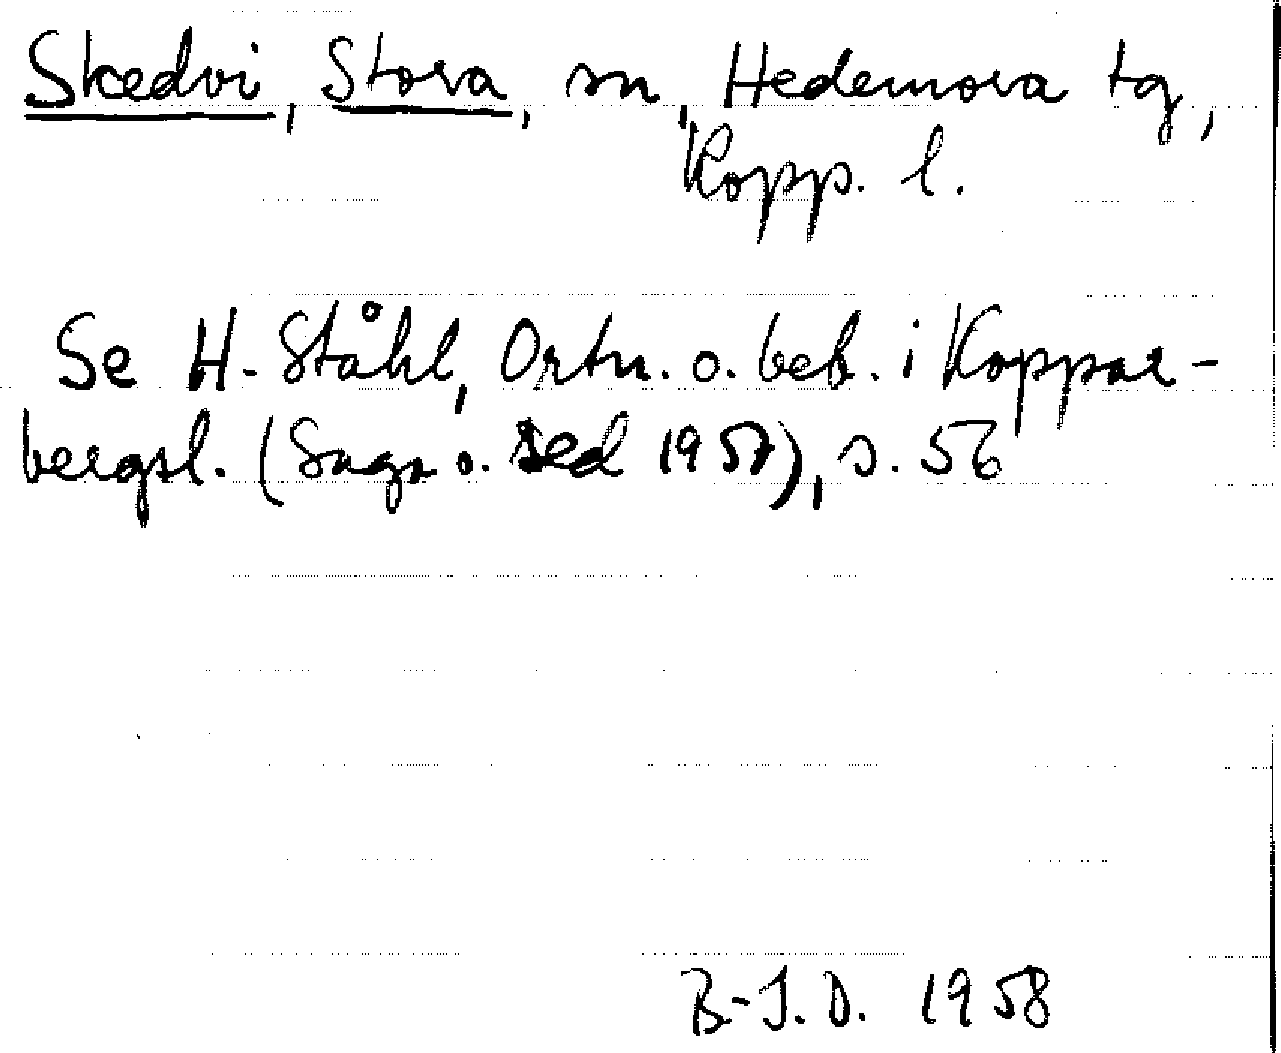 Skedvi, Stora, sn, Hedemora tg,
Kopp. l.
Se H. Ståhl, Ortn. o. beb. i Koppar-
bergsl. (Saga o. sed 1957), s. 56
B-J.D. 1958